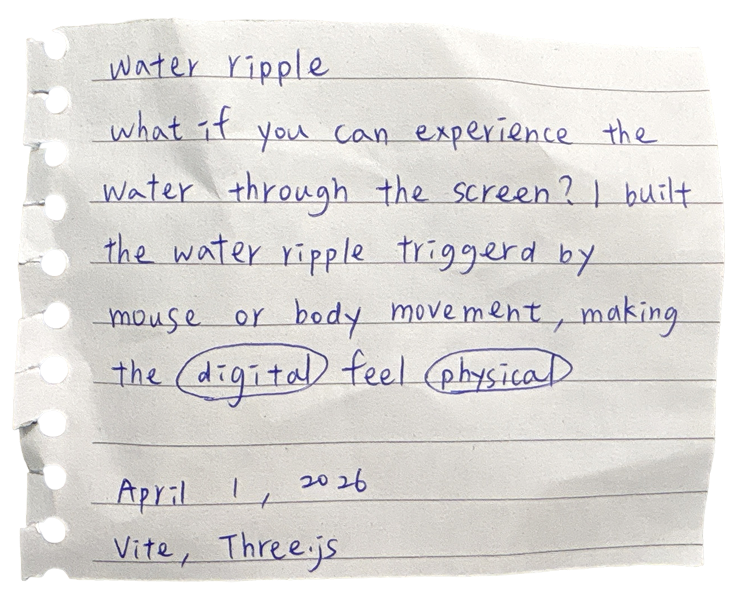 water ripple
what if you can experience the
water through the screen? I built
the water ripple triggerd by
mouse or body movement, making
the digital feel physical
April 1, 2026
Vite, Three.js